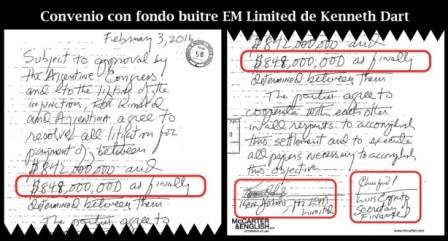 Convenio con fondo buitre EM Limited de Kenneth Dart
February 3, 2016
Subject to approval by
the Argentine Congress
and to the lifting of the
injunctions, EM Limited
and Argentina agree to
resolve all litigation for
payment of between
$842,000,000 and
$848,000,000 as finally
determined between them
The parties agree to
$842,000,000 and
$848,000,000 as finally
determined between them
The parties agree to
cooperate with each other
in all respects to accomplish
this settlement and to execute
all papers necessary to accomplish
this objective
for EM
Limited
Luis Caputo
Secretary of
Finance
McCARTER
&ENGLISH
www.mccarter.com